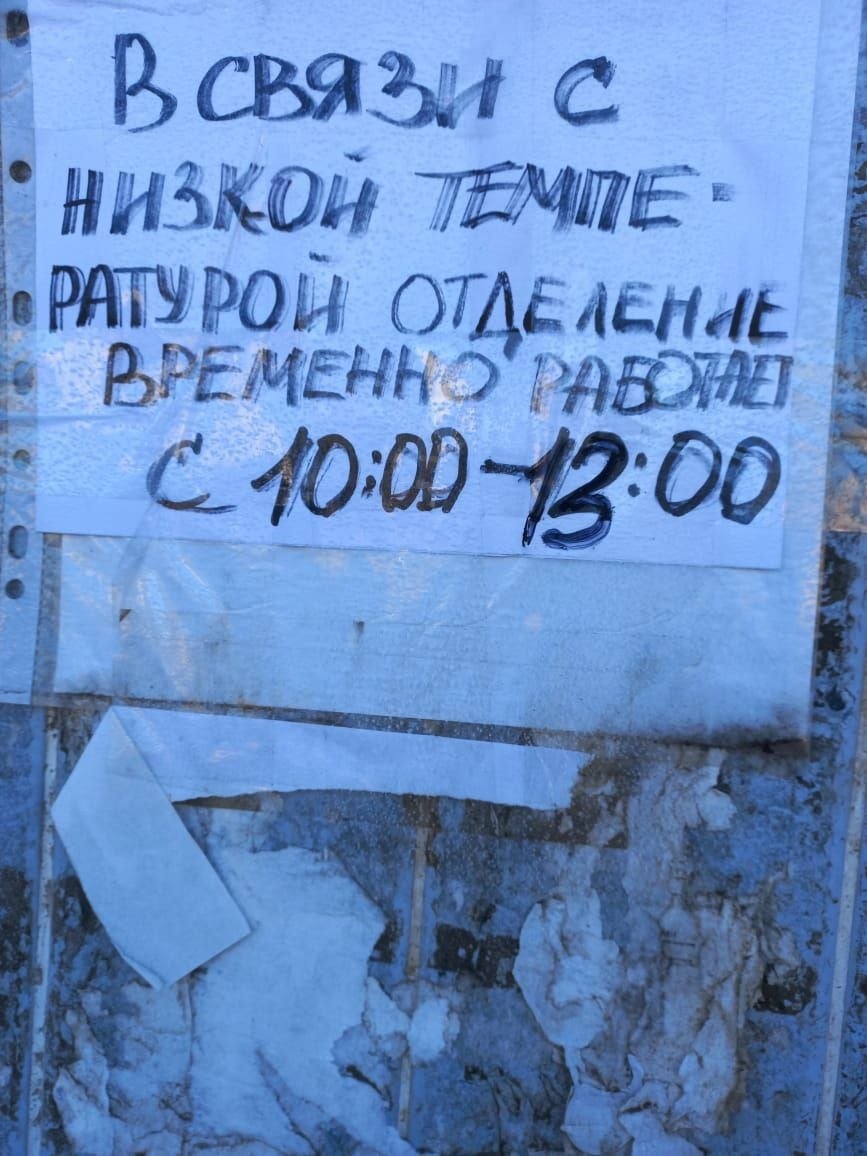 В СВЯЗИ С
НИЗКОЙ ТЕМПЕ-
РАТУРОЙ ОТДЕЛЕНИЕ
ВРЕМЕННО РАБОТАЕТ
С 10:00-13:00